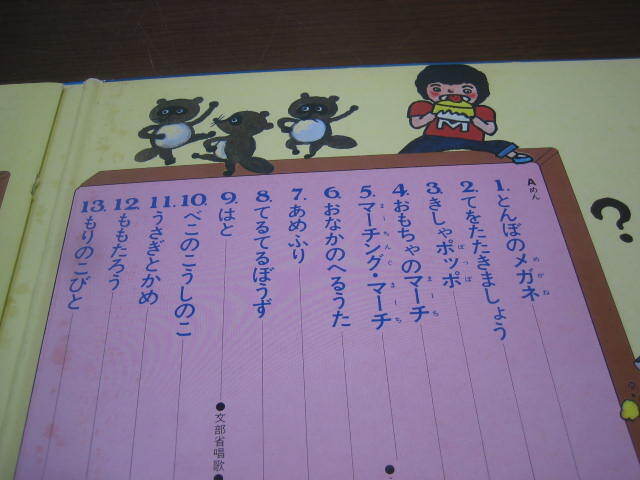 A.めん
1.とんぼのメガネ
めがね
2.てをたたきましょう
3.きしゃポッポ
ぽっぽ
4.おもちゃのマーチ
まーち
5.マーチング・マーチ
まーちんぐ まーち
6.おなかのへるうた
7.あめふり
8.てるてるぼうず
9.はと
●文部省唱歌
10.べこのこうしのこ
11.うさぎとかめ
12.ももたろう
13.もりのこびと
?